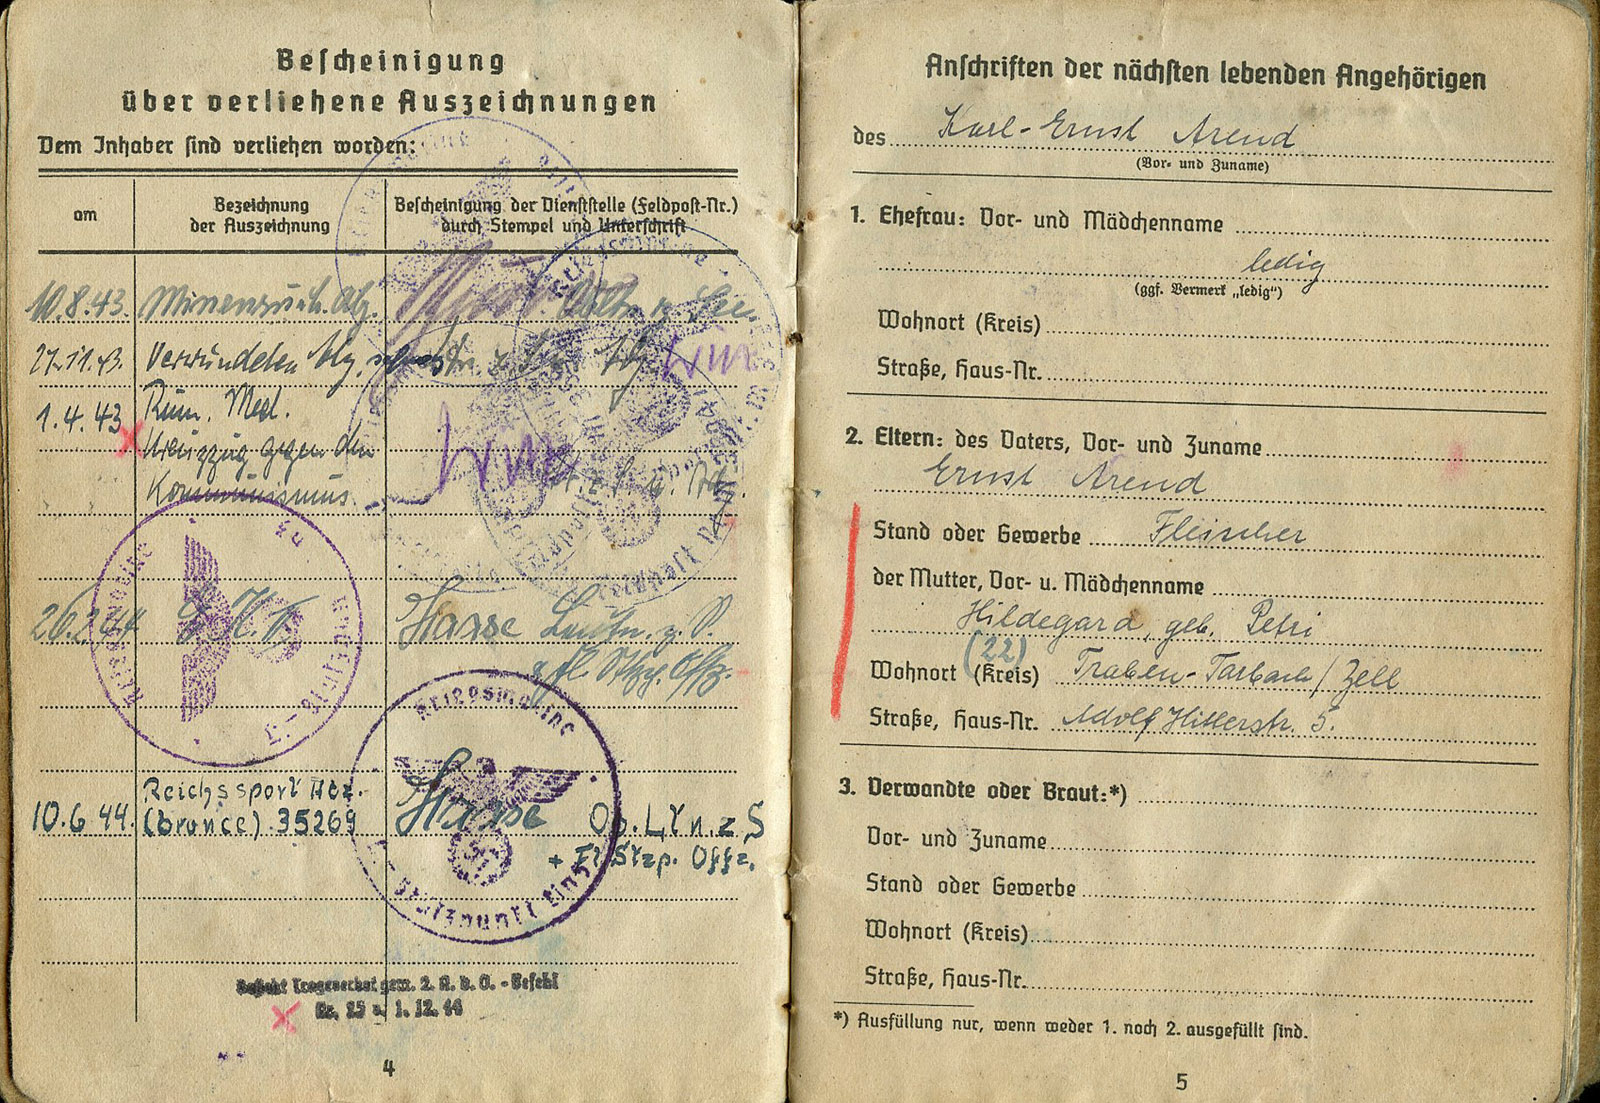 Bescheinigung
über verliehene Auszeichnungen
Dem Inhaber sind verliehen worden:
am
Bezeichnung
der Auszeichnung
Bescheinigung der Dienststelle (Feldpost-Nr.)
durch Stempel und Unterschrift
10.8.43. Minensuch. Abz.
27.11.43. Verwundeten Abz.
1.4.43 Rum. Med.
Kreuzzug gegen den
Kommunismus.
26.2.44 E. K. II Hasse Leutn. z. S.
Kriegsmarine
Reichssport Abz.
10.6 44. (bronce) 35269 Hasse Ob. Ltn. z S
+ Fl. Stzp. Offz.
Kriegsmarine
gem. 2. A. d. O. - Befehl
Nr. 25 v. 1. 12. 44
4
Anschriften der nächsten lebenden Angehörigen
des Karl-Ernst Arend
(Vor- und Zuname)
1. Ehefrau: Vor- und Mädchenname
ledig
(ggf. Vermerk „ledig")
Wohnort (Kreis)
Straße, Haus-Nr.
2. Eltern: des Vaters, Vor- und Zuname
Ernst Arend
Stand oder Gewerbe Fleischer
der Mutter, Vor- u. Mädchenname
Hildegard, geb. Petri
(22)
Wohnort (Kreis) Traben-Tarbach / Zell
Straße, Haus-Nr. Adolf Hitlerstr. 5.
3. Verwandte oder Braut:*)
Vor- und Zuname
Stand oder Gewerbe
Wohnort (Kreis)
Straße, Haus-Nr.
*) Ausfüllung nur, wenn weder 1. noch 2. ausgefüllt sind.
5